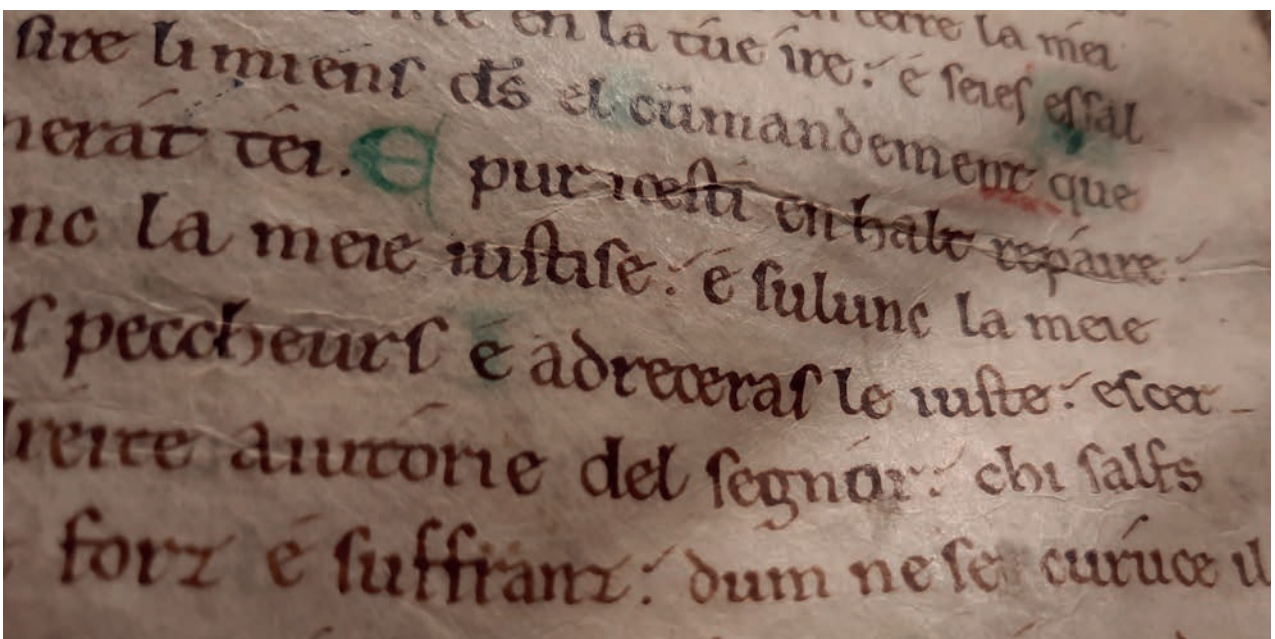 terre la mei
en la túe ire: é seies essal
sire li miens ds el cumandement que
nerát téi. E pur icesti en halt repáire:
nc la meie iustise: é sulunc la meie
s peccheurs é adreceras le iuste: escer-
reite aiutórie del segnór: chi salfs
forz é suffranz: dum ne se curúce il